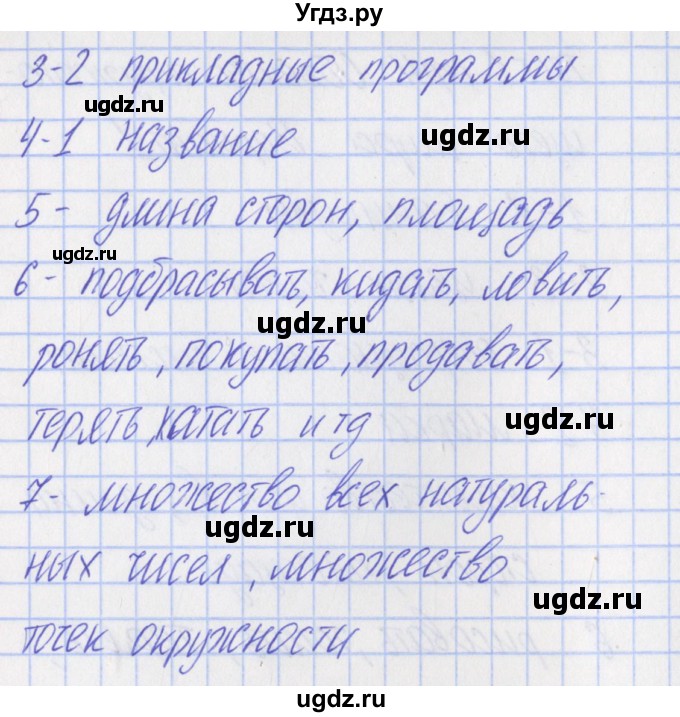 Угдз.ру
3-2 прикладные программы
ugdz.ru
4-1 название
ugdz.ru
5- длина сторон, площадь
ugdz.ru
6- подбрасывать, кидать, ловить,
ugdz.ru
ронять, покупать, продавать,
терять, катать и тд
ugdz.ru
7- множество всех натураль-
ugdz.ru
ных чисел, множество
ugdz.ru
точек окружности
ugdz.ru